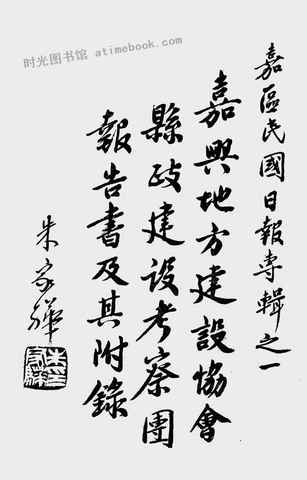 时光图书馆 atimebook.com
嘉區民國日報專輯之一
嘉興地方建設協會
縣政建設考察團
報告書及其附錄
朱家驊